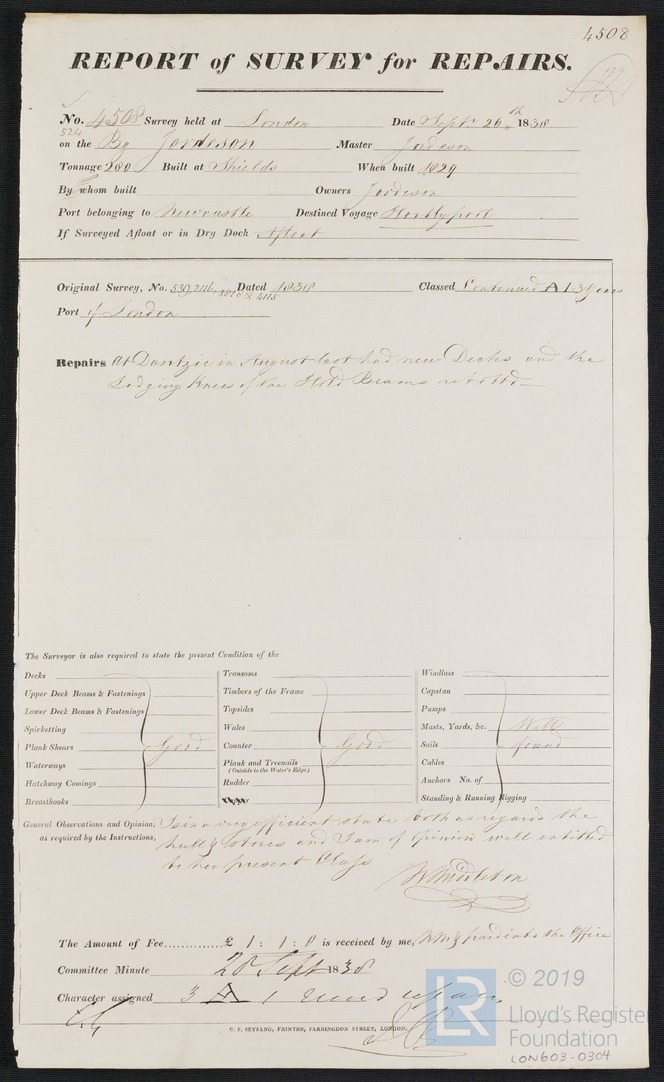 4508
REPORT of SURVEY for REPAIRS.
No. 4508 Survey held at London Date Septr 26th 1838
524
on the Bg Jordeson Master Jordeson
Tonnage 280 Built at Shields When built 1829
By whom built Owners Jordeson
Port belonging to Newcastle Destined Voyage Hartlypool
If Surveyed Afloat or in Dry Dock Afloat
Original Survey, No. 539, 2116, 3810 & 4115 Dated 1838 Classed Continued A 1 3 Years
Port of London
Repairs At Dantzic in August last had new Decks and the
Lodging Knees of the Hold Beams rebolted
The Surveyor is also required to state the present Condition of the
Decks
Upper Deck Beams & Fastenings
Lower Deck Beams & Fastenings
Spirketting
Plank Shears Good
Waterways
Hatchway Comings
Breasthooks
Transoms
Timbers of the Frame
Topsides
Wales
Counter Good
Plank and Treenails
(Outside to the Water's Edge)
Rudder
Windlass
Capstan
Pumps
Masts, Yards, &c. Well
Sails found
Cables
Anchors No. of
Standing & Running Rigging
General Observations and Opinion, Is in a very efficient state both as regards the
as required by the Instructions, hull & stores and I am of Opinion well entitled
to her present Class
W Middleton
The Amount of Fee............... £ 1 : 1 : 0 is received by me, WM & paid into the Office
Committee Minute 28 Sept 1838
Character assigned 3 A 1
U. F. SEYFANG, PRINTER, FARRINGDON STREET, LONDON.
LR
© 2019
Lloyd's Register
Foundation
LON603-0304